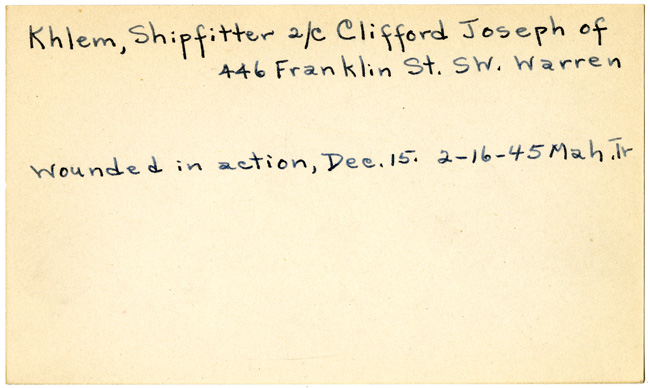 Khlem, Shipfitter 2/c Clifford Joseph of
446 Franklin St. SW. Warren
Wounded in action, Dec. 15. 2-16-45 Mah. Tr